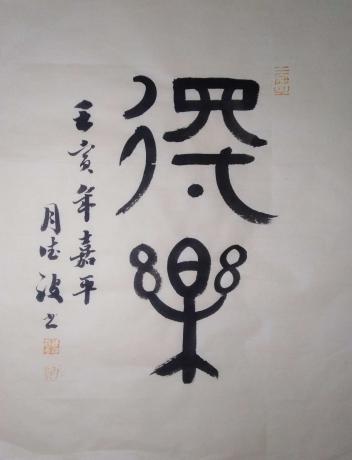 德樂
壬寅年嘉平
月德波书